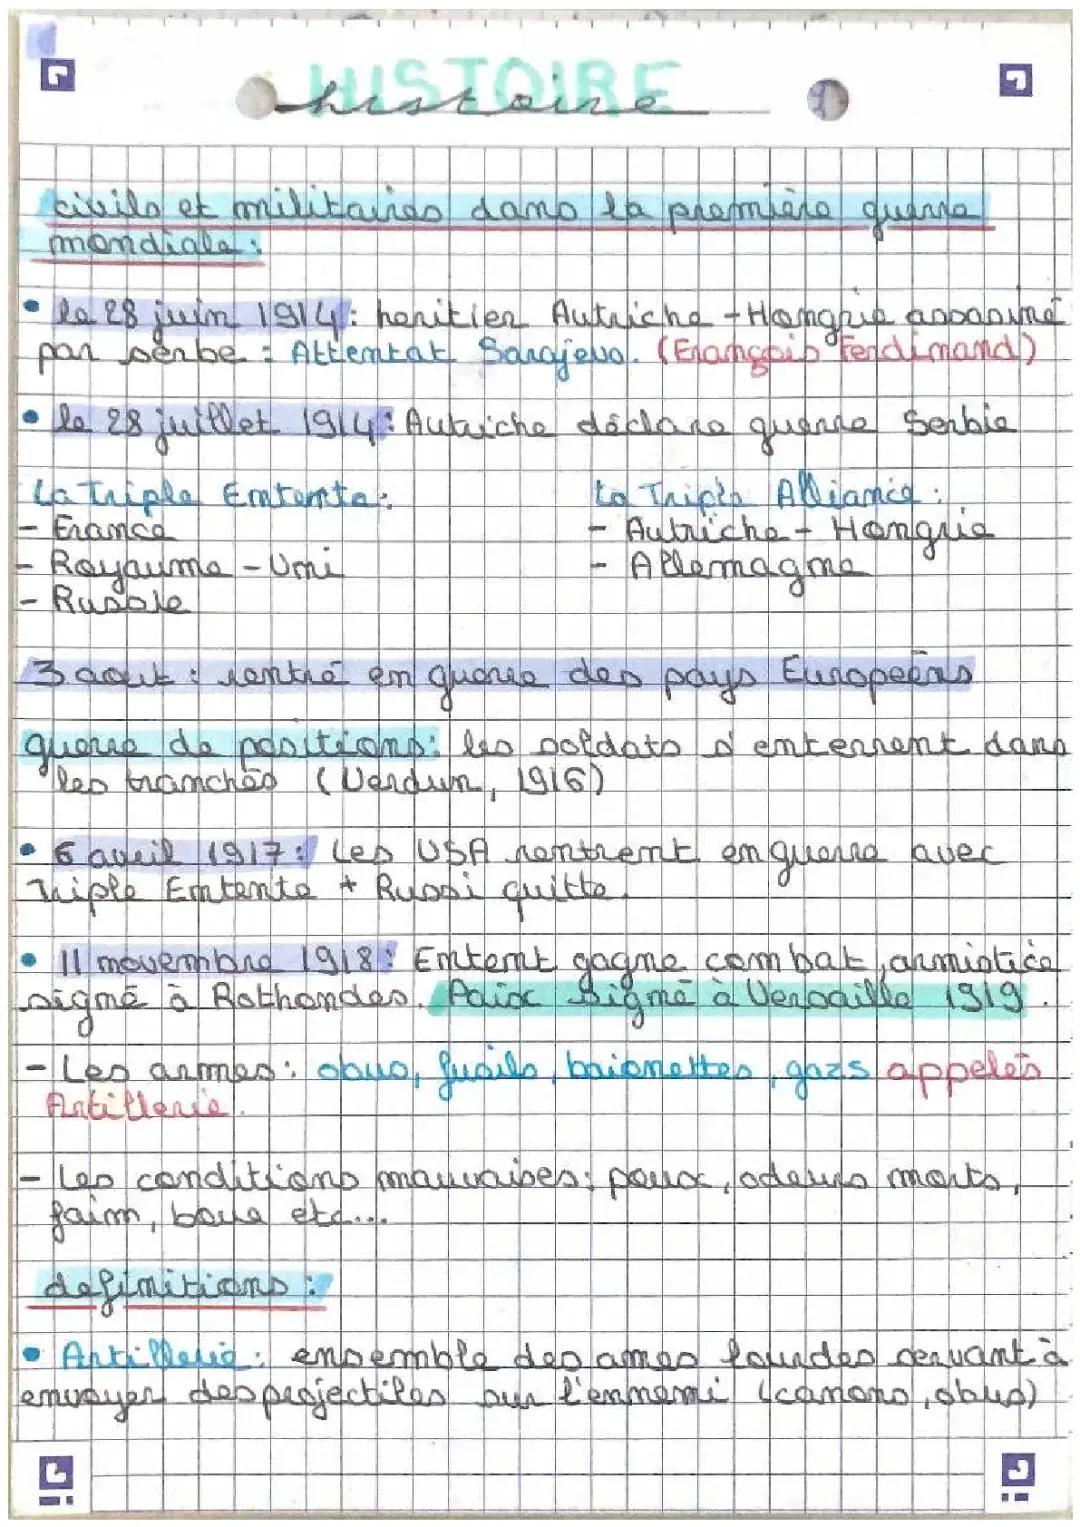 HISTOIRE
histoire
civils et militaires dans la première guerre
mondiale :
• le 28 juin 1914 : heritier Autriche - Hongrie assasiné
par serbe : Attentat Sarajevo. (François Ferdinand)
• le 28 juillet 1914 : Autriche déclare guerre Serbie
La Triple Entente :
La Triple Alliance :
- France
- Autriche - Hongrie
- Royaume - Uni
- Allemagne
- Russie
3 aout : rentré en guerre des pays Européens
guerre de positions : les soldats s'enterrent dans
les tranchés (Verdun, 1916)
• 6 avril 1917 : Les USA rentrent en guerre avec
Triple Entente + Russi quitte.
• 11 novembre 1918 : Entent gagne combat, armistice
signé à Rothondes. Paix signé à Versaille 1919.
- Les armes : obus, fusils, baionettes, gazs appelés
Artillerie.
- Les conditions mauvaises : poux, odeurs morts,
faim, boue etc...
definitions :
• Artillerie : ensemble des ames lourdes servant à
envoyer des projectiles sur l'ennemi (canons, obus)